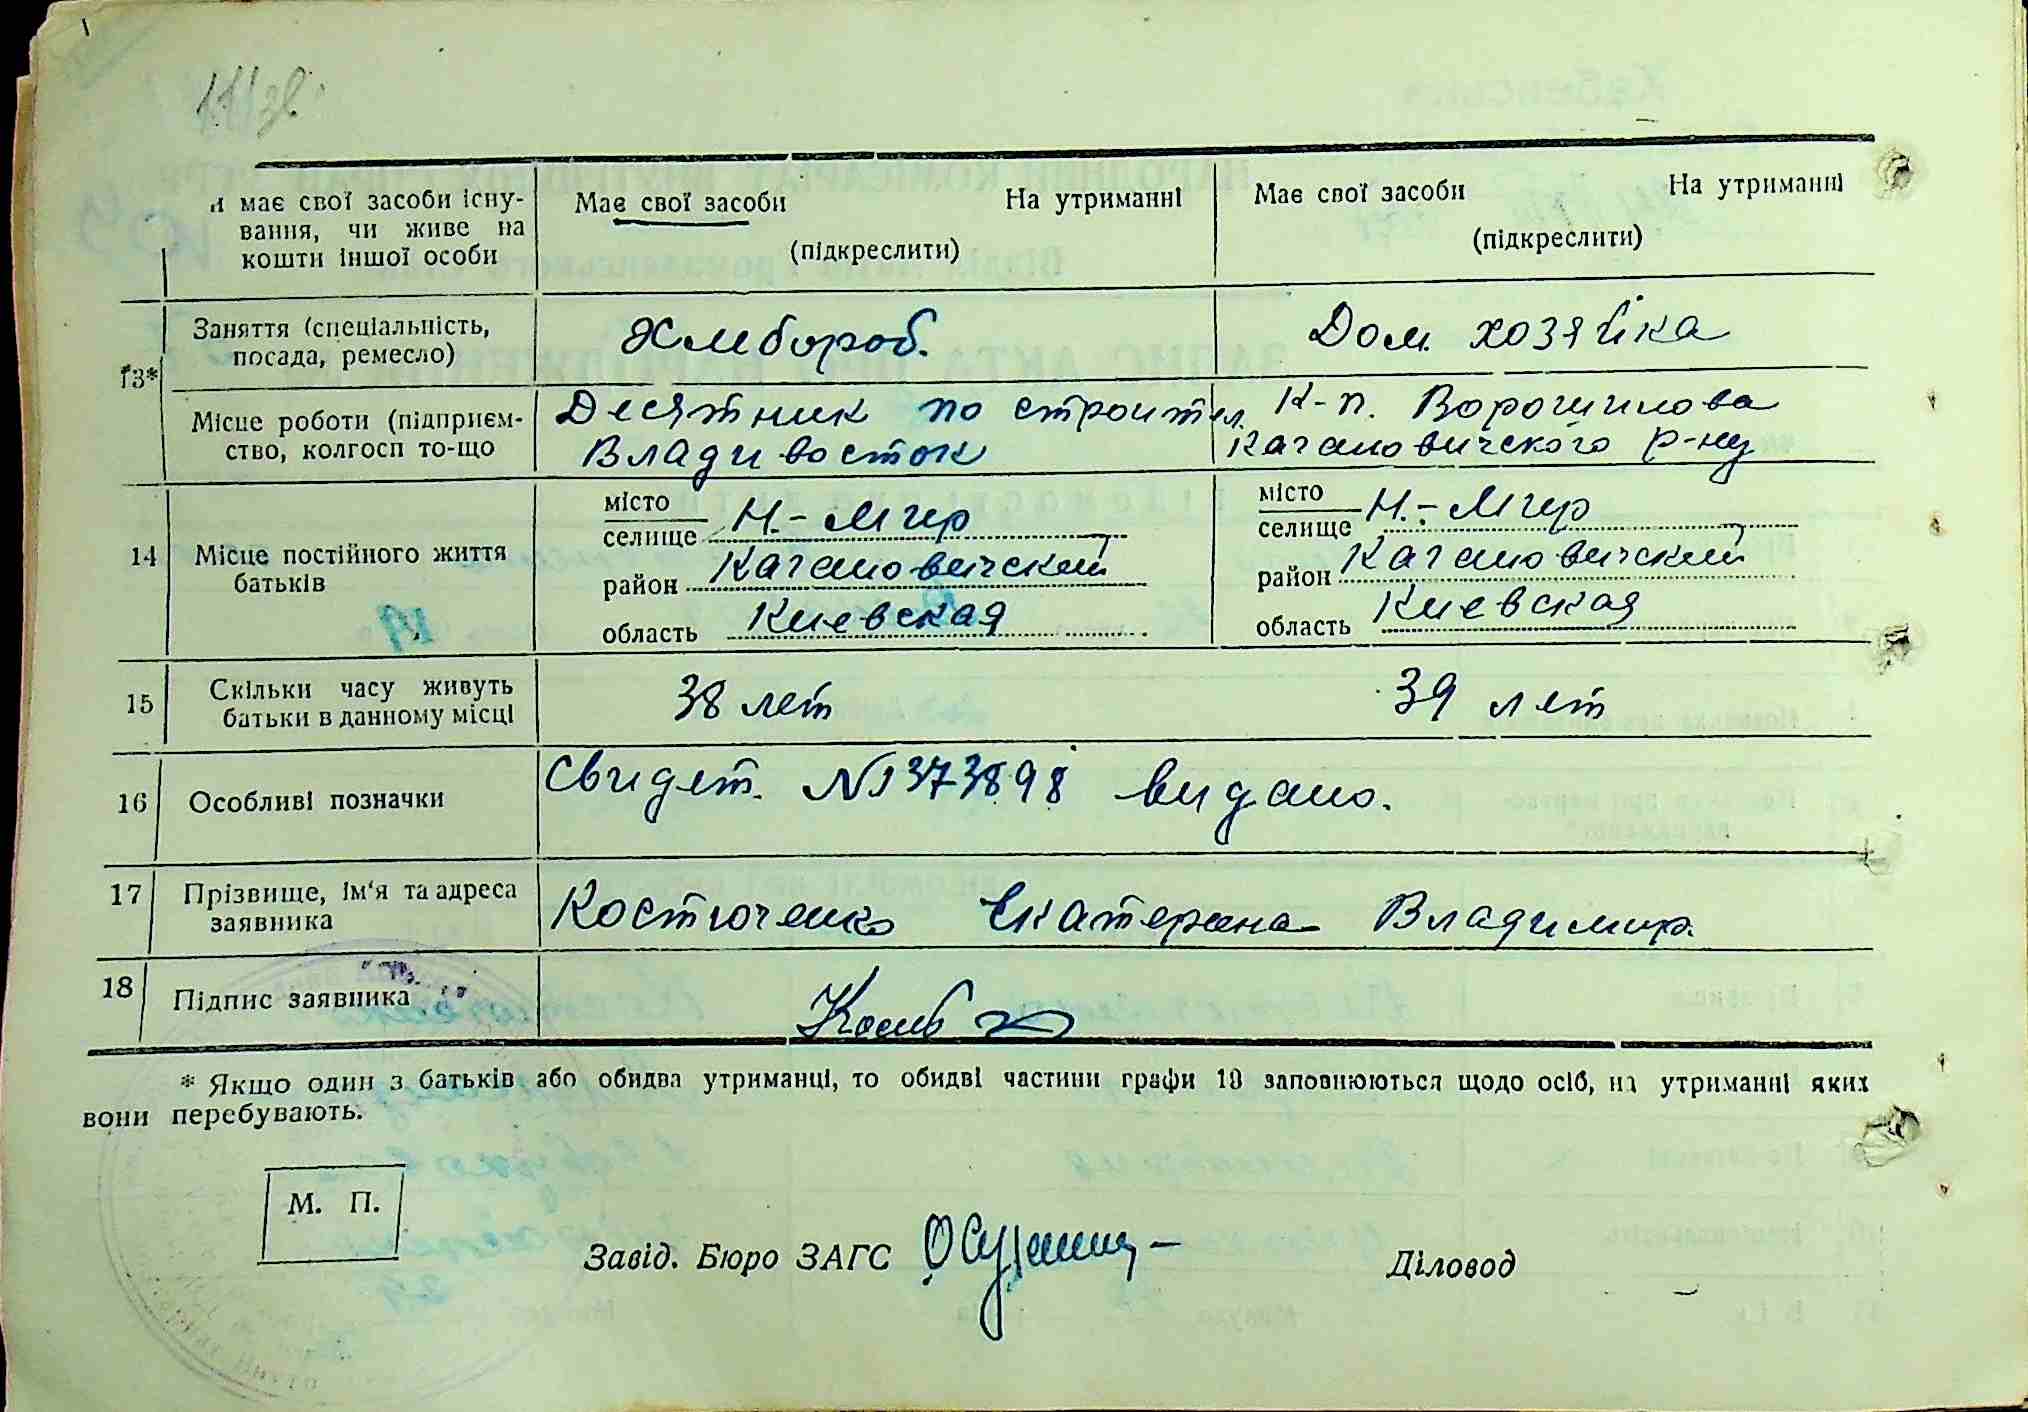 11 зв.
и має свої засоби існу-
вання, чи живе на
кошти іншої особи
Має свої засоби На утриманні
(підкреслити)
Має свої засоби На утриманні
(підкреслити)
13*
Заняття (спеціальність,
посада, ремесло)
Хлебороб.
Дом. хозяйка
Місце роботи (підприєм-
ство, колгосп то-що
Десятник по строител.
Владивосток
К-п. Ворошилова
Кагановичского р-ну
14
Місце постійного життя
батьків
місто
селище Н.-Мгер
район Кагановичский
область Киевская
місто
селище Н.-Мгер
район Кагановичский
область Киевская
15
Скільки часу живуть
батьки в данному місці
38 лет
39 лет
16
Особливі позначки
Свидет. № 373898 видано.
17
Прізвище, ім'я та адреса
заявника
Костюченко Екатерина Владимир.
18
Підпис заявника
* Якщо один з батьків або обидва утриманці, то обидві частини графи 10 заповнюються щодо осіб, на утриманні яких
вони перебувають.
М. П.
Завід. Бюро ЗАГС
Діловод